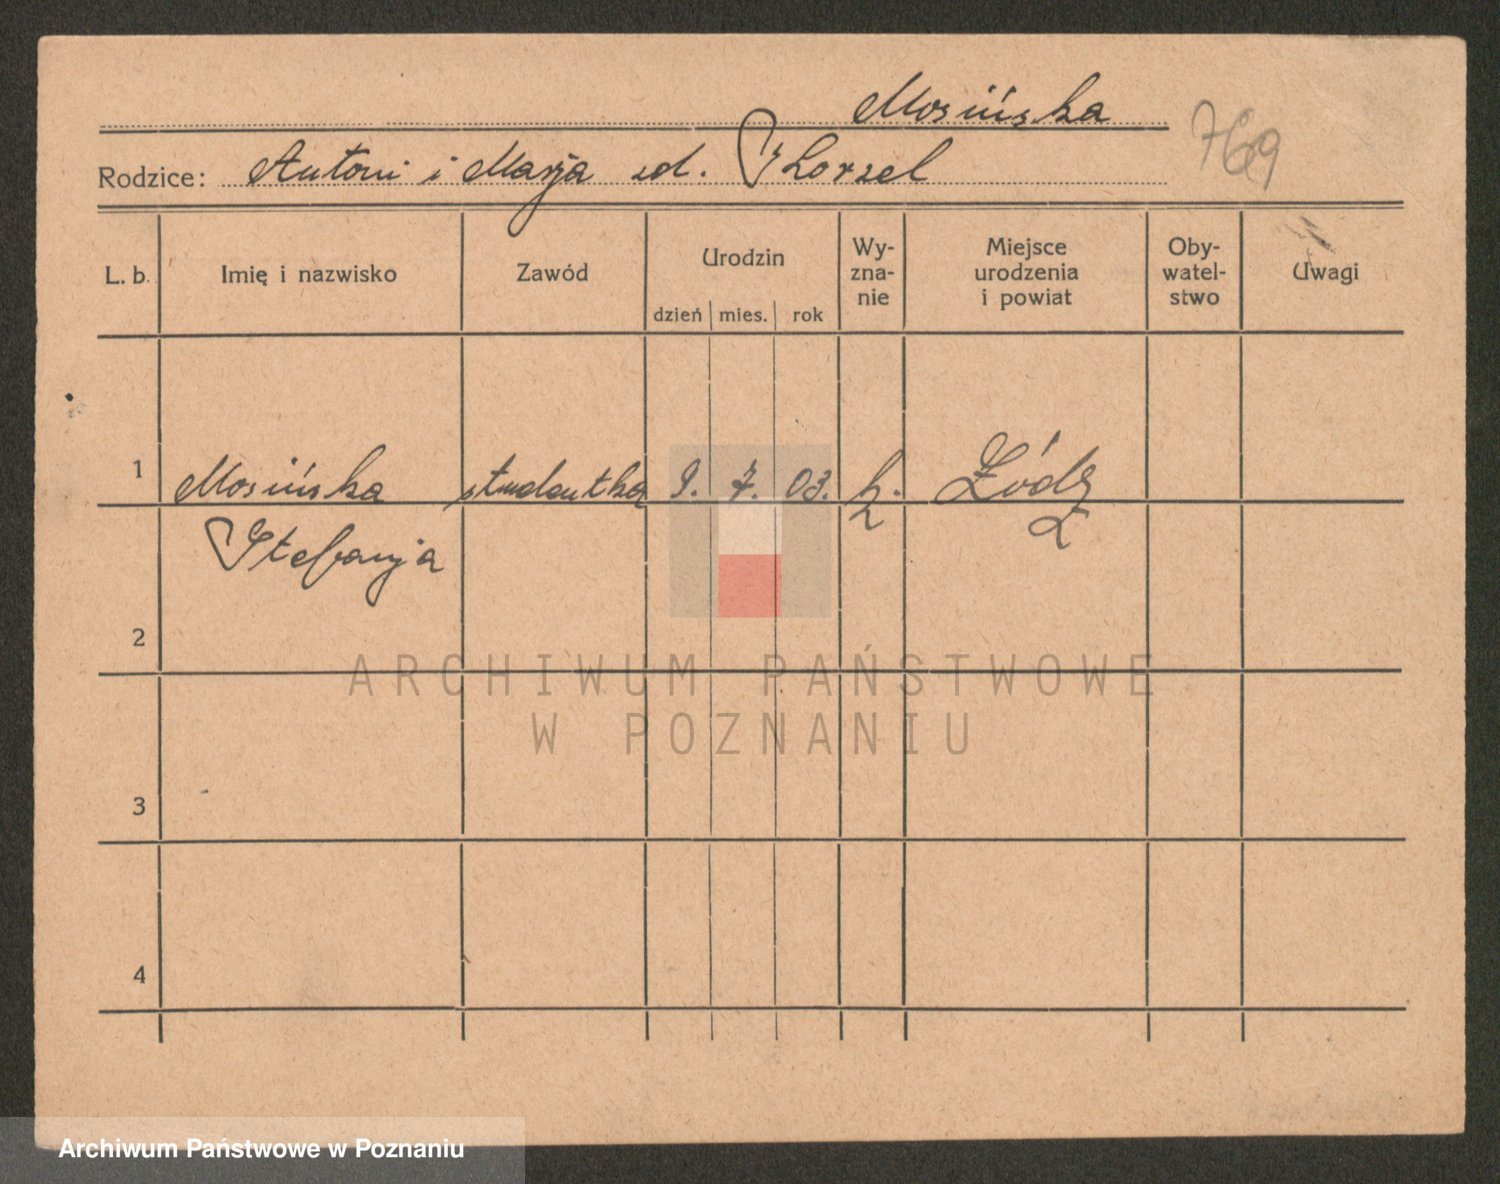 Mosińska
769
Rodzice: Antoni i Marja zd.
L. b. Imię i nazwisko Zawód Urodzin dzień mies. rok Wy-zna-nie Miejsce urodzenia i powiat Oby-watel-stwo Uwagi
1 Mosińska studentka 9. 7. 03. k. Łódź
Stefanja
2
ARCHIWUM PAŃSTWOWE
W POZNANIU
3
4
Archiwum Państwowe w Poznaniu